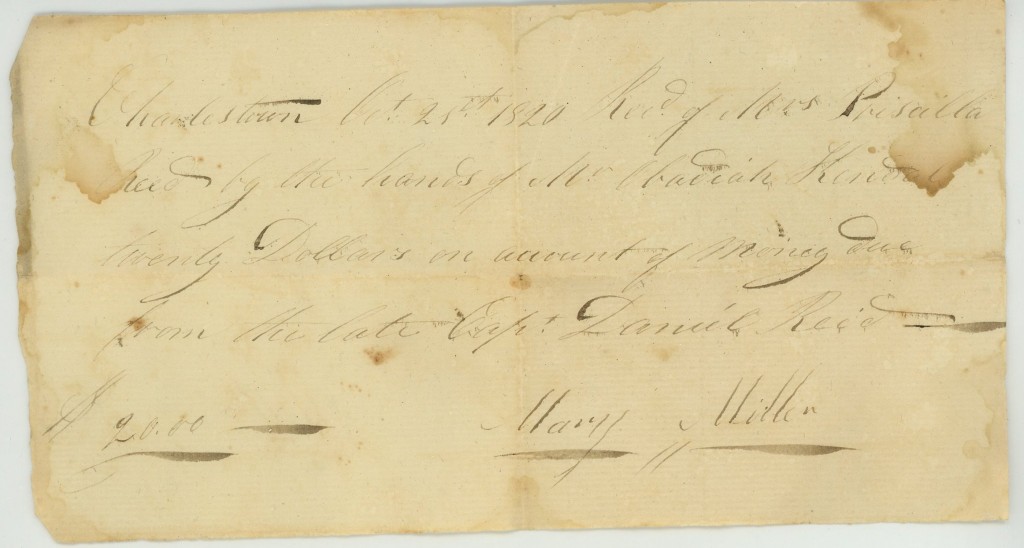 Charlestown Oct 25th 1820 Recd. of Mrs Priscilla
Reed by the hands of Mr Obadiah Kendal
twenty Dollars on account of money due
from the late Capt. Daniel Reed
$ 20.00 Mary Miller